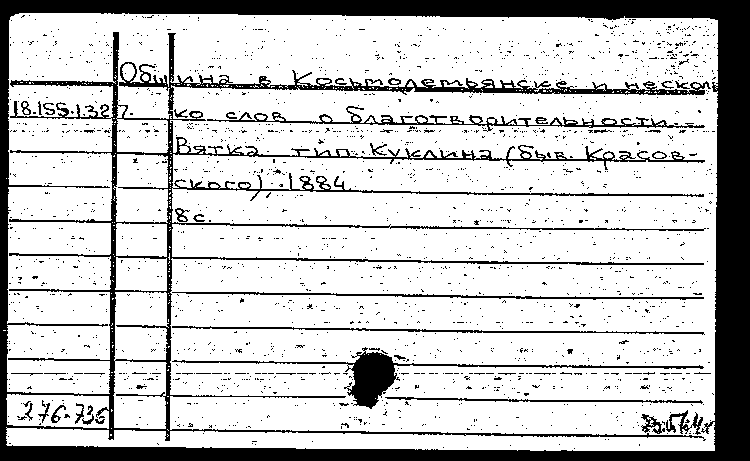 Община в Косьмодемьянске и несколь
18.155.1.327. ко слов о благотворительности. -
Вятка, тип. Куклина (быв. Красов-
ского), 1884.
8 с.
276-736